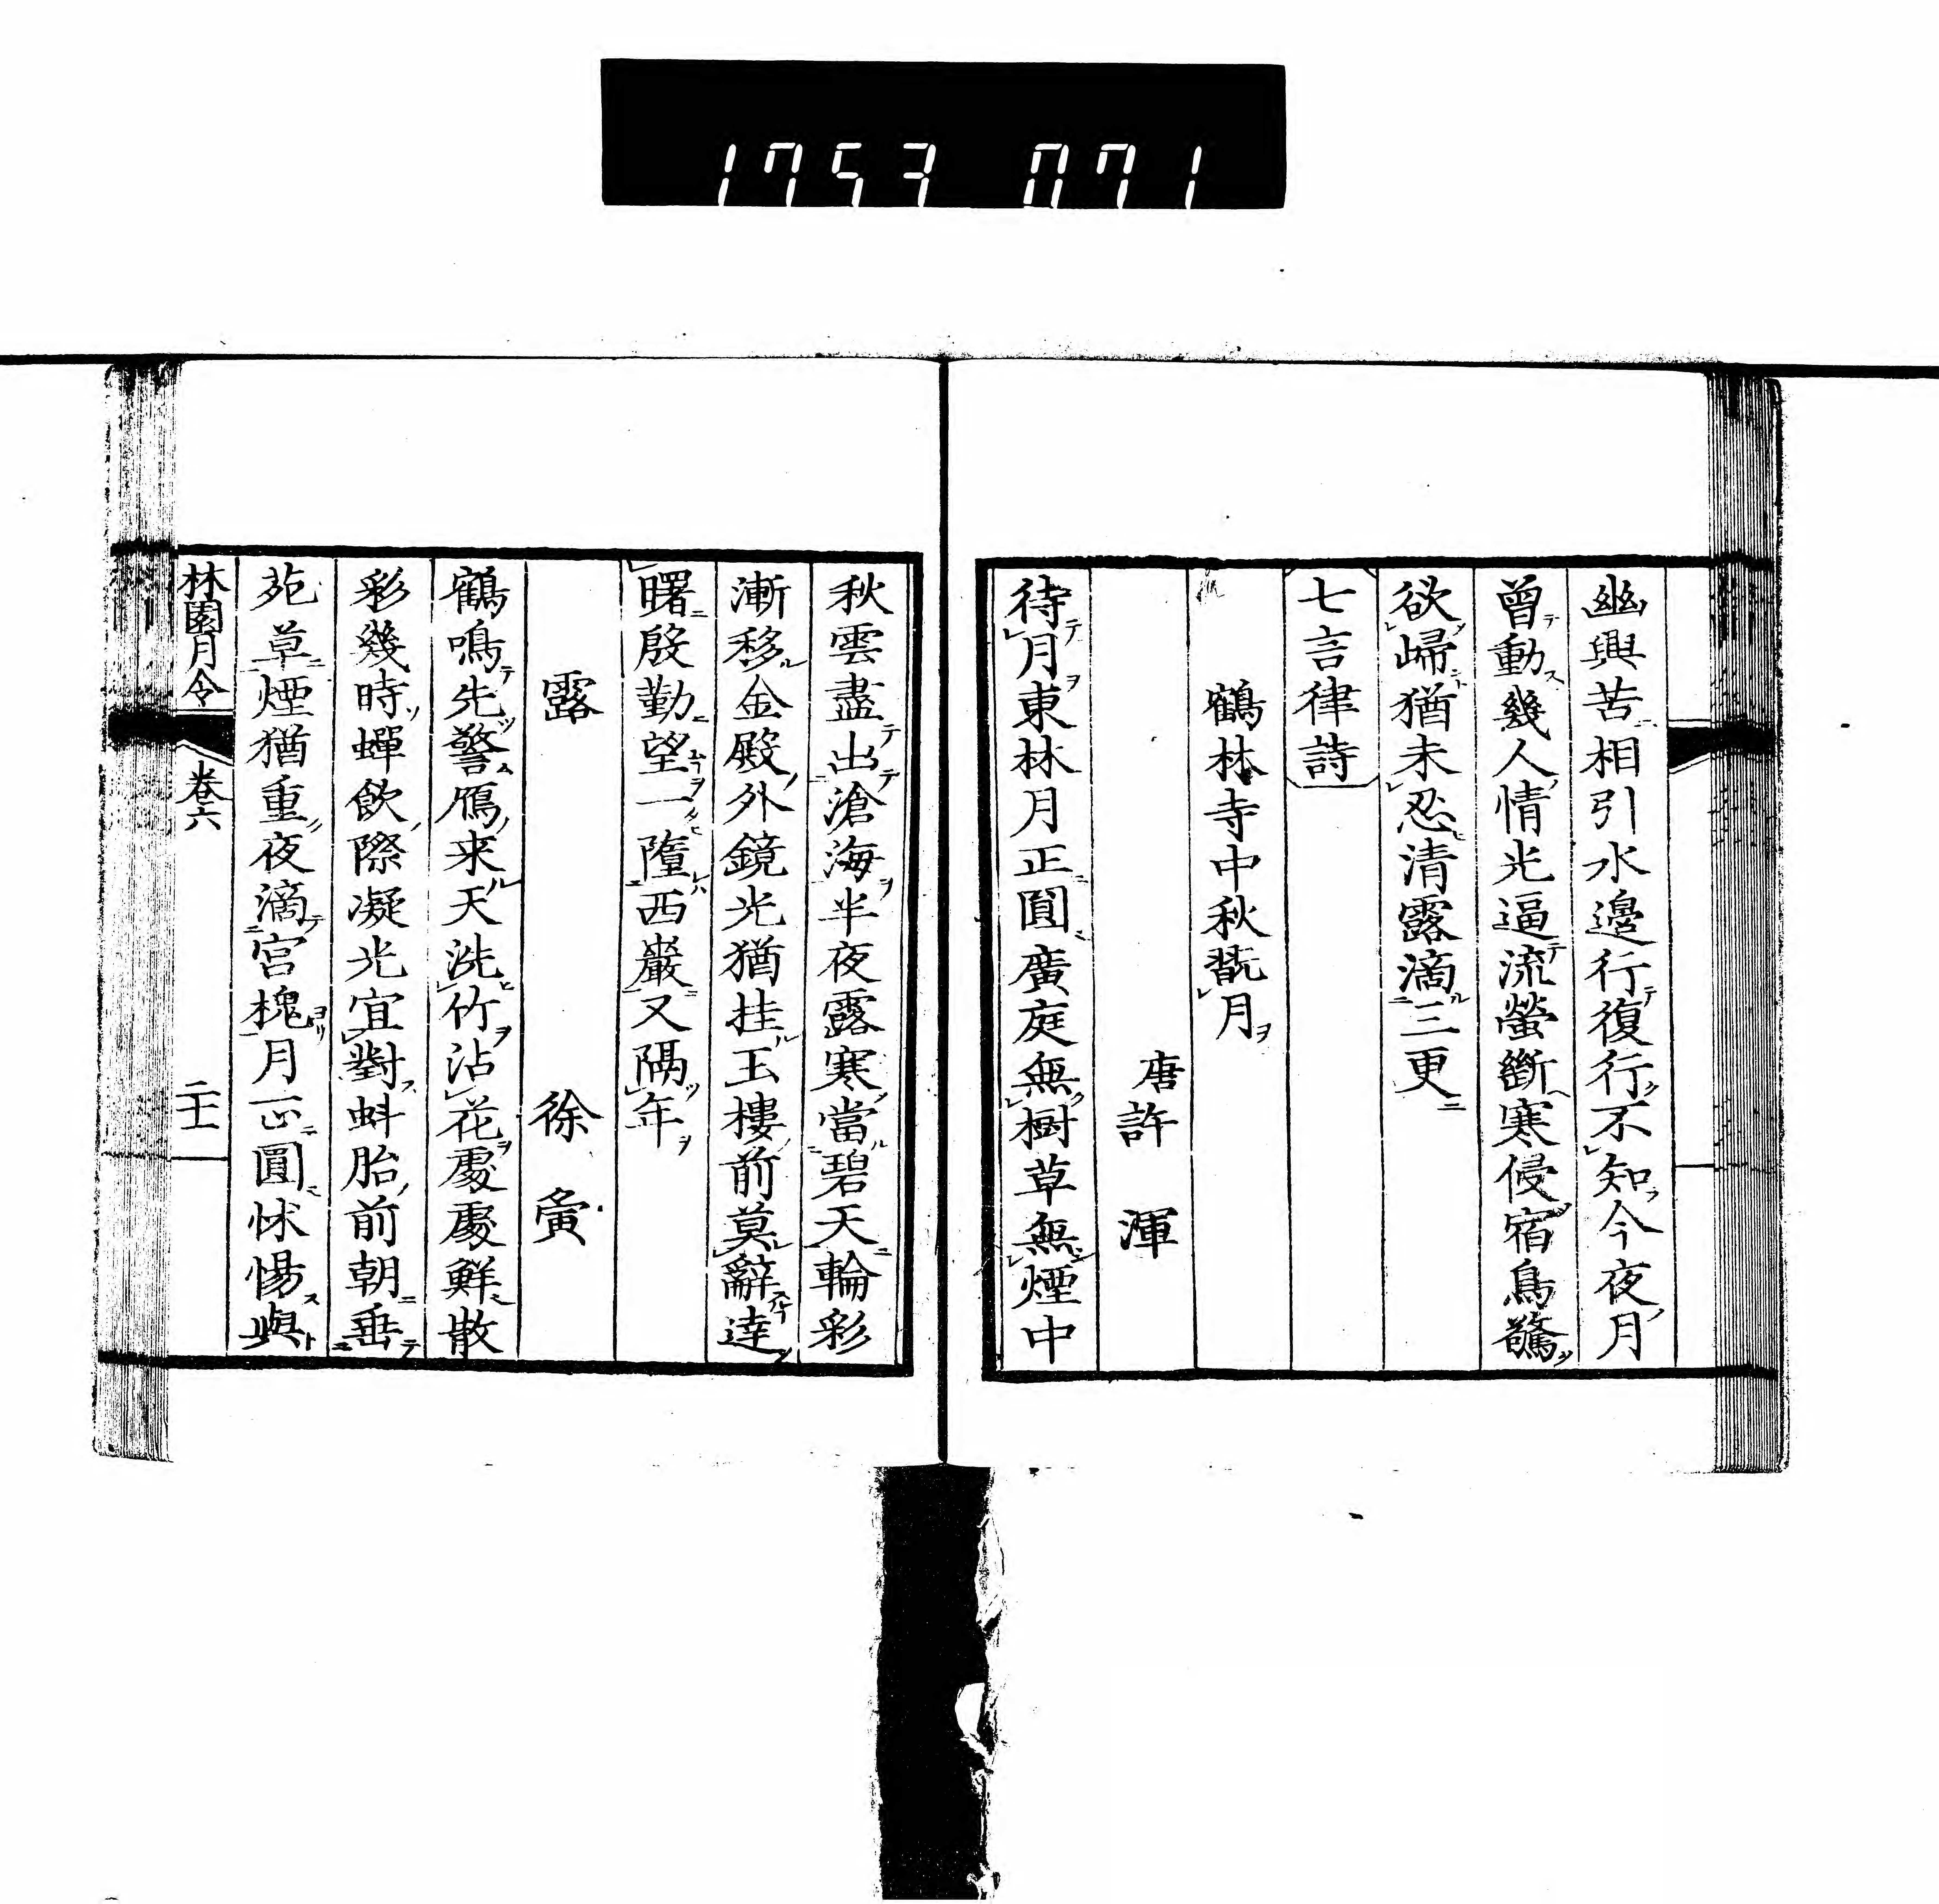 1753 071
幽興苦相引水邊行復行不知今夜月
曾動幾人情光逼流螢斷寒侵宿鳥驚
欲歸猶未忍清露滴三更
七言律詩
鶴林寺中秋翫月
唐許渾
待月東林月正圓廣庭無樹草無煙中
秋雲盡出滄海半夜露寒當碧天輪彩
漸移金殿外鏡光猶挂玉樓前莫辭達
曙殷勤望一墮西巖又隔年
露 徐夤
鶴鳴先警鴈来天洗竹沾花處處鮮散
彩幾時蟬飲際凝光宜對蚌胎前朝垂
苑草煙猶重夜滴宮槐月正圓怵惕與
林園月令 卷六 二十一